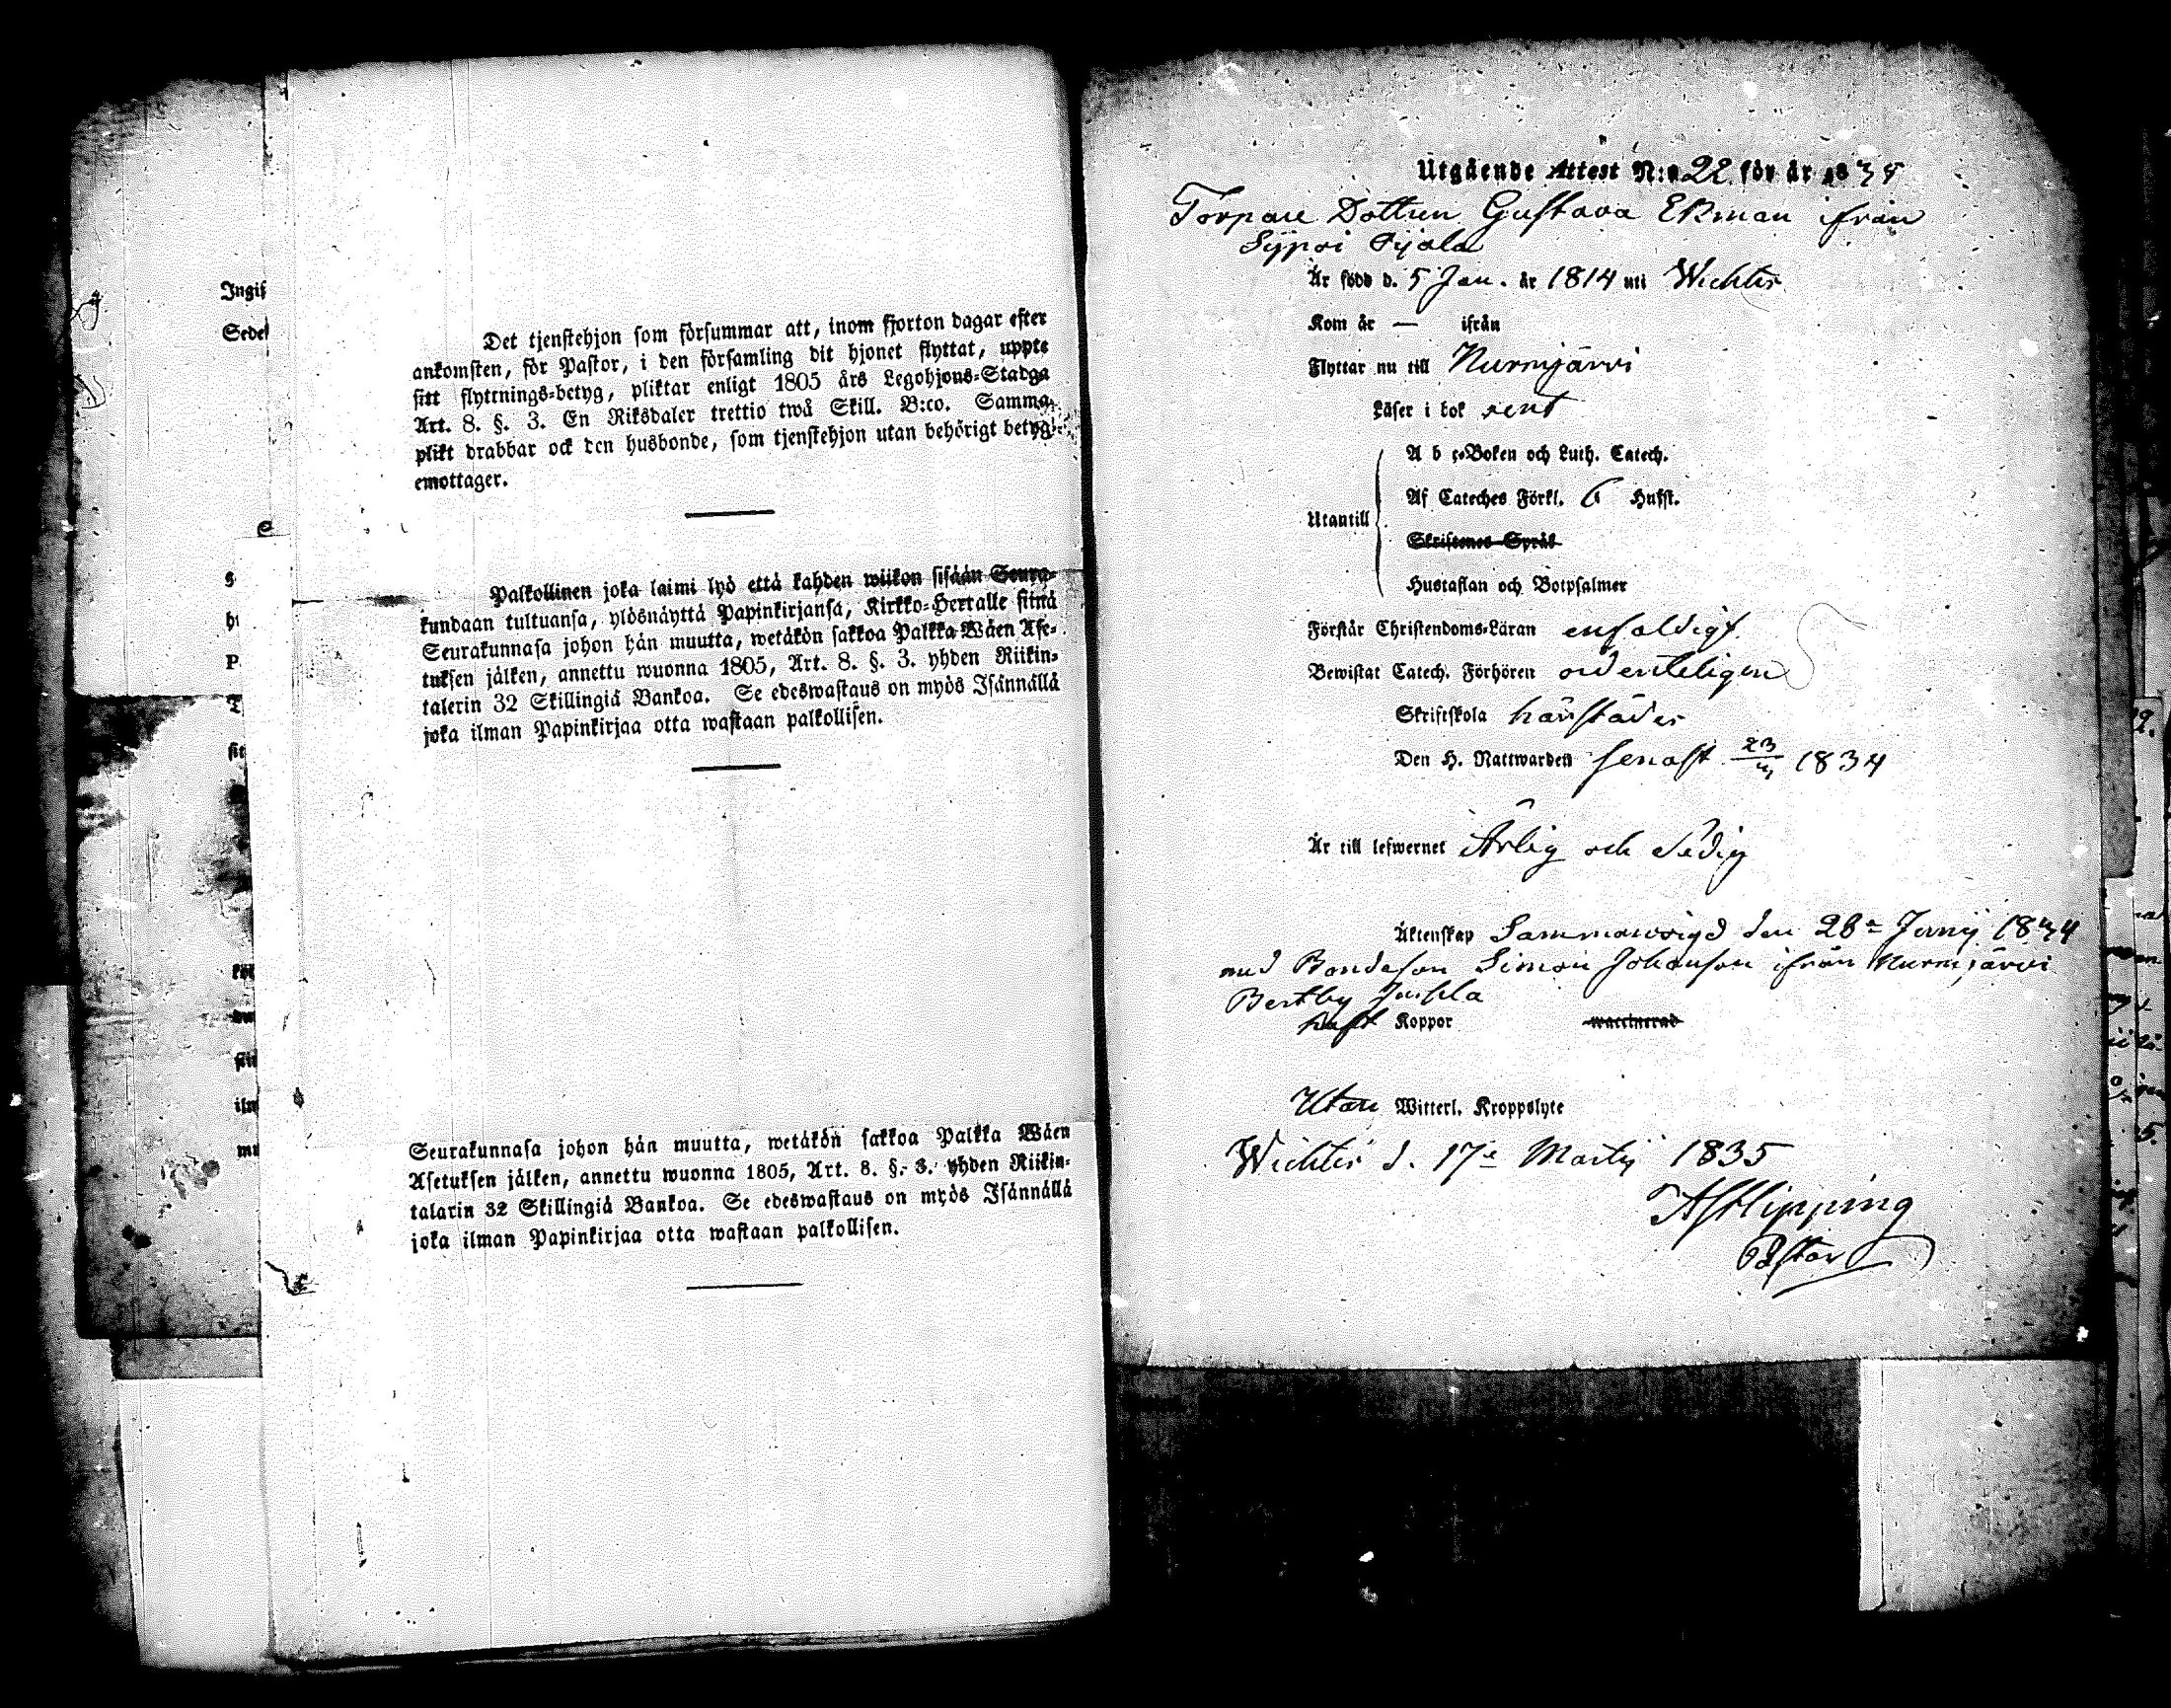 Det tjenstehjon som försummar att, inom fjorton dagar efter
ankomsten, för Pastor, i den församling dit hjonet flyttat, uppte
sitt flyttnings-betyg, pliktar enligt 1805 års Legohjons-Stadga
Art. 8. §. 3. En Riksdaler trettio twå Skill. B:co. Samma
plikt drabbar ock den husbonde, som tjenstehjon utan behörigt betyg
emottager.
Palkollinen joka laimi lyö että kahden wiikon sisään Seura-
kundaan tultuansa, ylösnäyttä Papinkirjansa, Kirkko-Herralle siinä
Seurakunnasa johon hän muutta, wetäkön sakkoa Palkka Wäen Ase-
tuksen jälken, annettu wuonna 1805, Art. 8. §. 3. yhden Riikin-
talerin 32 Skillingiä Bankoa. Se edeswastaus on myös Isännällä
joka ilman Papinkirjaa otta wastaan palkollisen.
Seurakunnasa johon hän muutta, wetäkön sakkoa Palkka Wäen
Asetuksen jälken, annettu wuonna 1805, Art. 8. §. 3. yhden Riikin-
talarin 32 Skillingiä Bankoa. Se edeswastaus on myös Isännällä
joka ilman Papinkirjaa otta wastaan palkollisen.
Utgående Attest N:o 22 för år 1835
Torpare Dottren Gustava Ekman ifrån
Ojala
Är född d. 5 Jan. år 1814 uti Wichtis
Kom år — ifrån
Flyttar nu till Nurmijärvi
Läser i bok rent
A b c-Boken och Luth. Catech.
Af Cateches Förkl. 6 Hufst.
Utantill
Skriftenes Språk
Hustaflan och Botpsalmer
Förstår Christendoms-Läran enfaldigt
Bewistat Catech. Förhören ordenteligen
Skriftskola härstädes
Den H. Nattwarden senast 23/3 1834
Är till lefwernet Ärlig och Sedig
Äktenskap Sammanvigd den 28 Junij 1834
med Bondeson Simon Johanson ifrån Nurmijärvi
Bertby Jussila
haft Koppor waccinerad
Utan Witterl. Kroppslyte
Wichtis d. 17e Martij 1835
Pastor